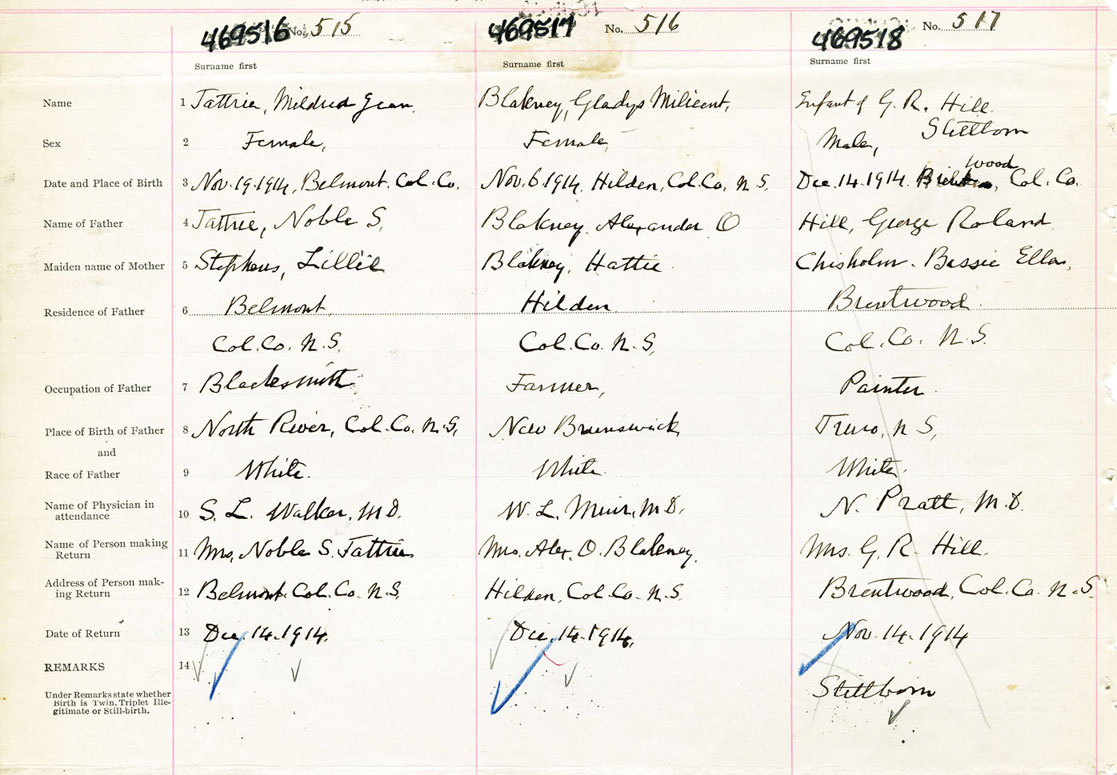 469516 No. 515
Surname first
469517 No. 516
Surname first
469518 No. 517
Surname first
Name 1 Tattrie, Mildred Jean, Blakney, Gladys Milicent, Enfant of G. R. Hill
Stillborn
Sex 2 Female, Female, Male,
wood
Date and Place of Birth 3 Nov. 19. 1914, Belmont. Col. Co. Nov. 6. 1914, Hilden, Col. Co. N. S. Dec. 14. 1914. , Col. Co.
Name of Father 4 Tattrie, Noble S, Blakney, Alexander O Hill, George Roland,
Maiden name of Mother 5 Stephens, Lillie Blakney, Hattie Chisholm. Bessie Ellen,
Residence of Father 6 Belmont Hilden Brentwood
Col. Co. N. S. Col. Co. N. S, Col. Co. N. S.
Occupation of Father 7 Blacksmith Farmer, Painter
Place of Birth of Father 8 North River, Col. Co. N. S, New Brunswick Truro, N S,
and
Race of Father 9 White. White White
Name of Physician in
attendance 10 S. L. Walker, M.D. W. L. Muir, M.D. N. Pratt, M.D.
Name of Person making
Return 11 Mrs, Noble S. Tattrie Mrs. Alex. O. Blakney, Mrs. G. R. Hill.
Address of Person mak-
ing Return 12 Belmont, Col. Co. N. S, Hilden, Col. Co. N. S. Brentwood, Col. Co. N. S.
Date of Return 13 Dec. 14. 1914, Dec. 14. 1914, Nov. 14. 1914
REMARKS 14
Under Remarks state whether
Birth is Twin, Triplet Ille-
gitimate or Still-birth.
Stillborn